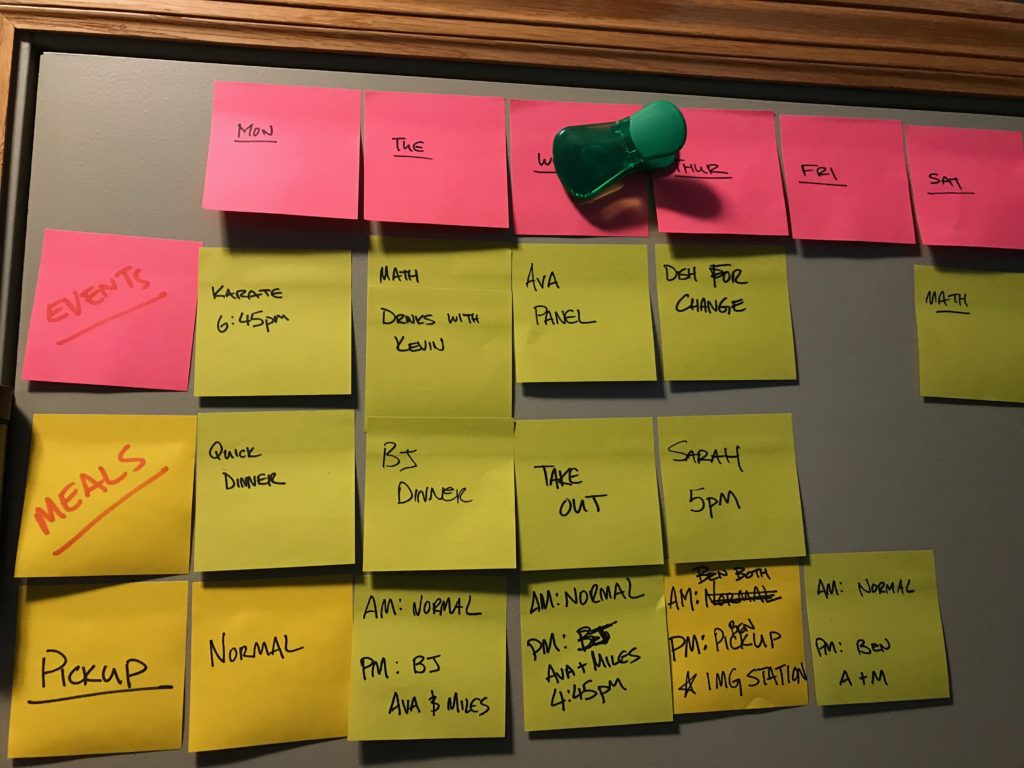 MON
TUE
W
THUR
FRI
SAT
EVENTS
KARATE
6:45pm
MATH
DRINKS WITH
KEVIN
AVA
PANEL
FOR
CHANGE
MATH
MEALS
QUICK
DINNER
BJ
DINNER
TAKE
OUT
SARAH
5pm
PICKUP
NORMAL
AM: NORMAL
PM: BJ
AVA & MILES
AM: NORMAL
PM: BJ
AVA + MILES
4:45pm
BEN BOTH
AM: NORMAL
BEN
PM: PICKUP
☆ IMG STATION
AM: NORMAL
PM: BEN
A + M